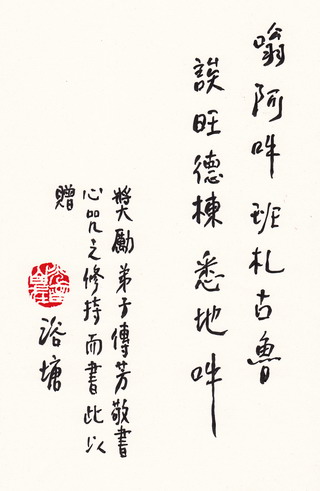 嗡阿吽班札古魯
誒旺德棟悉地吽
獎勵弟子傳芳敬書
心咒之修持而書此以
贈
浴